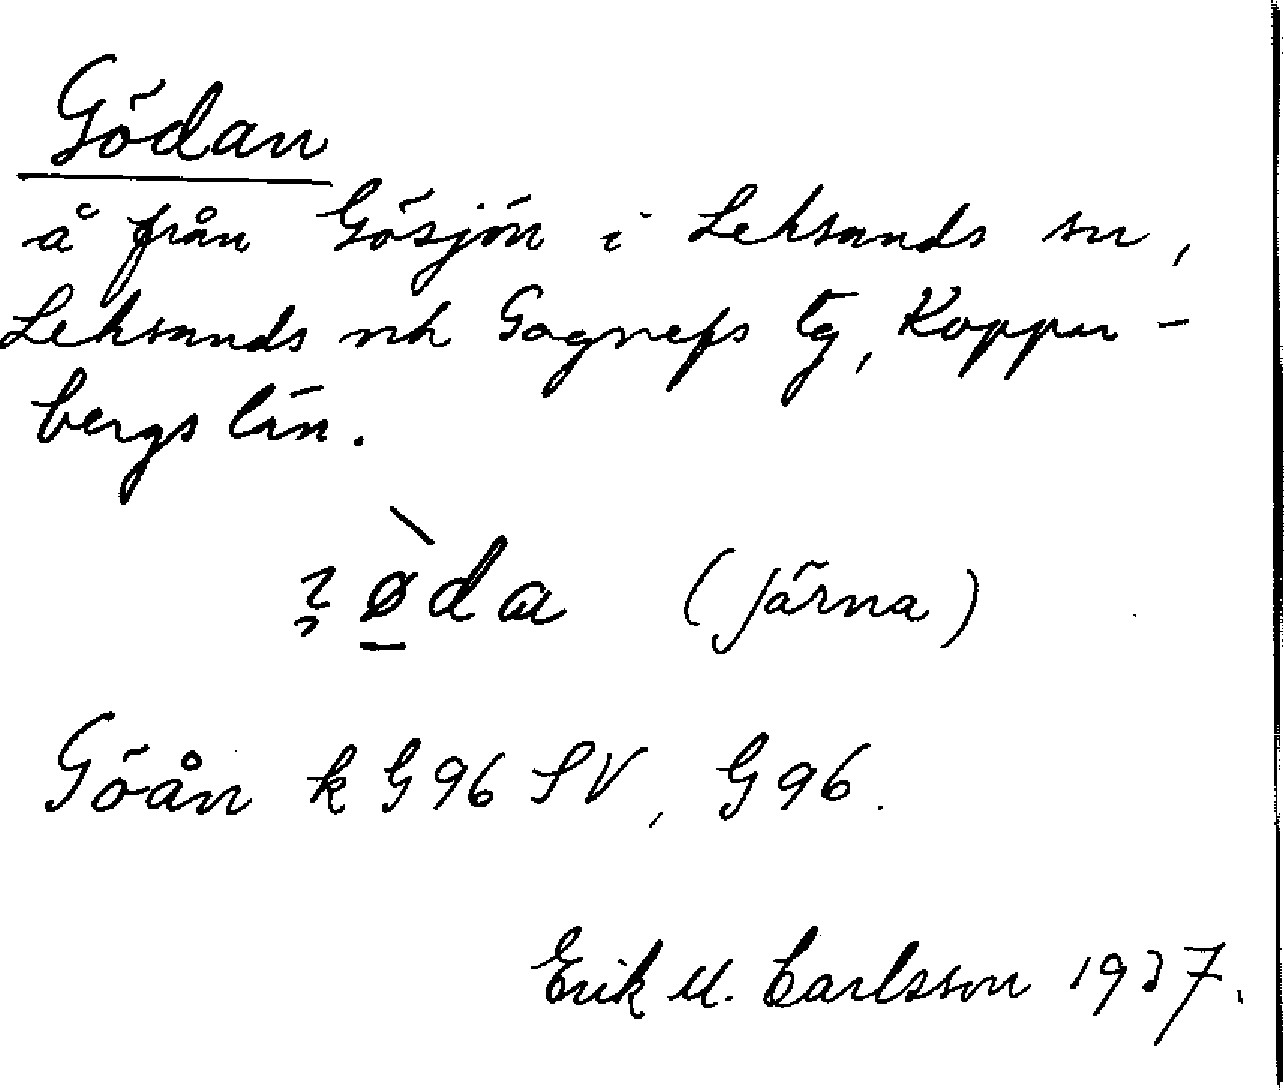 Gödan
å från Gösjön i Leksands sn,
Leksands och Gagnefs tg, Koppar-
bergs län.
øda (Järna)
Göån k G96 SV, G96.
Erik M. Carlsson 1937.